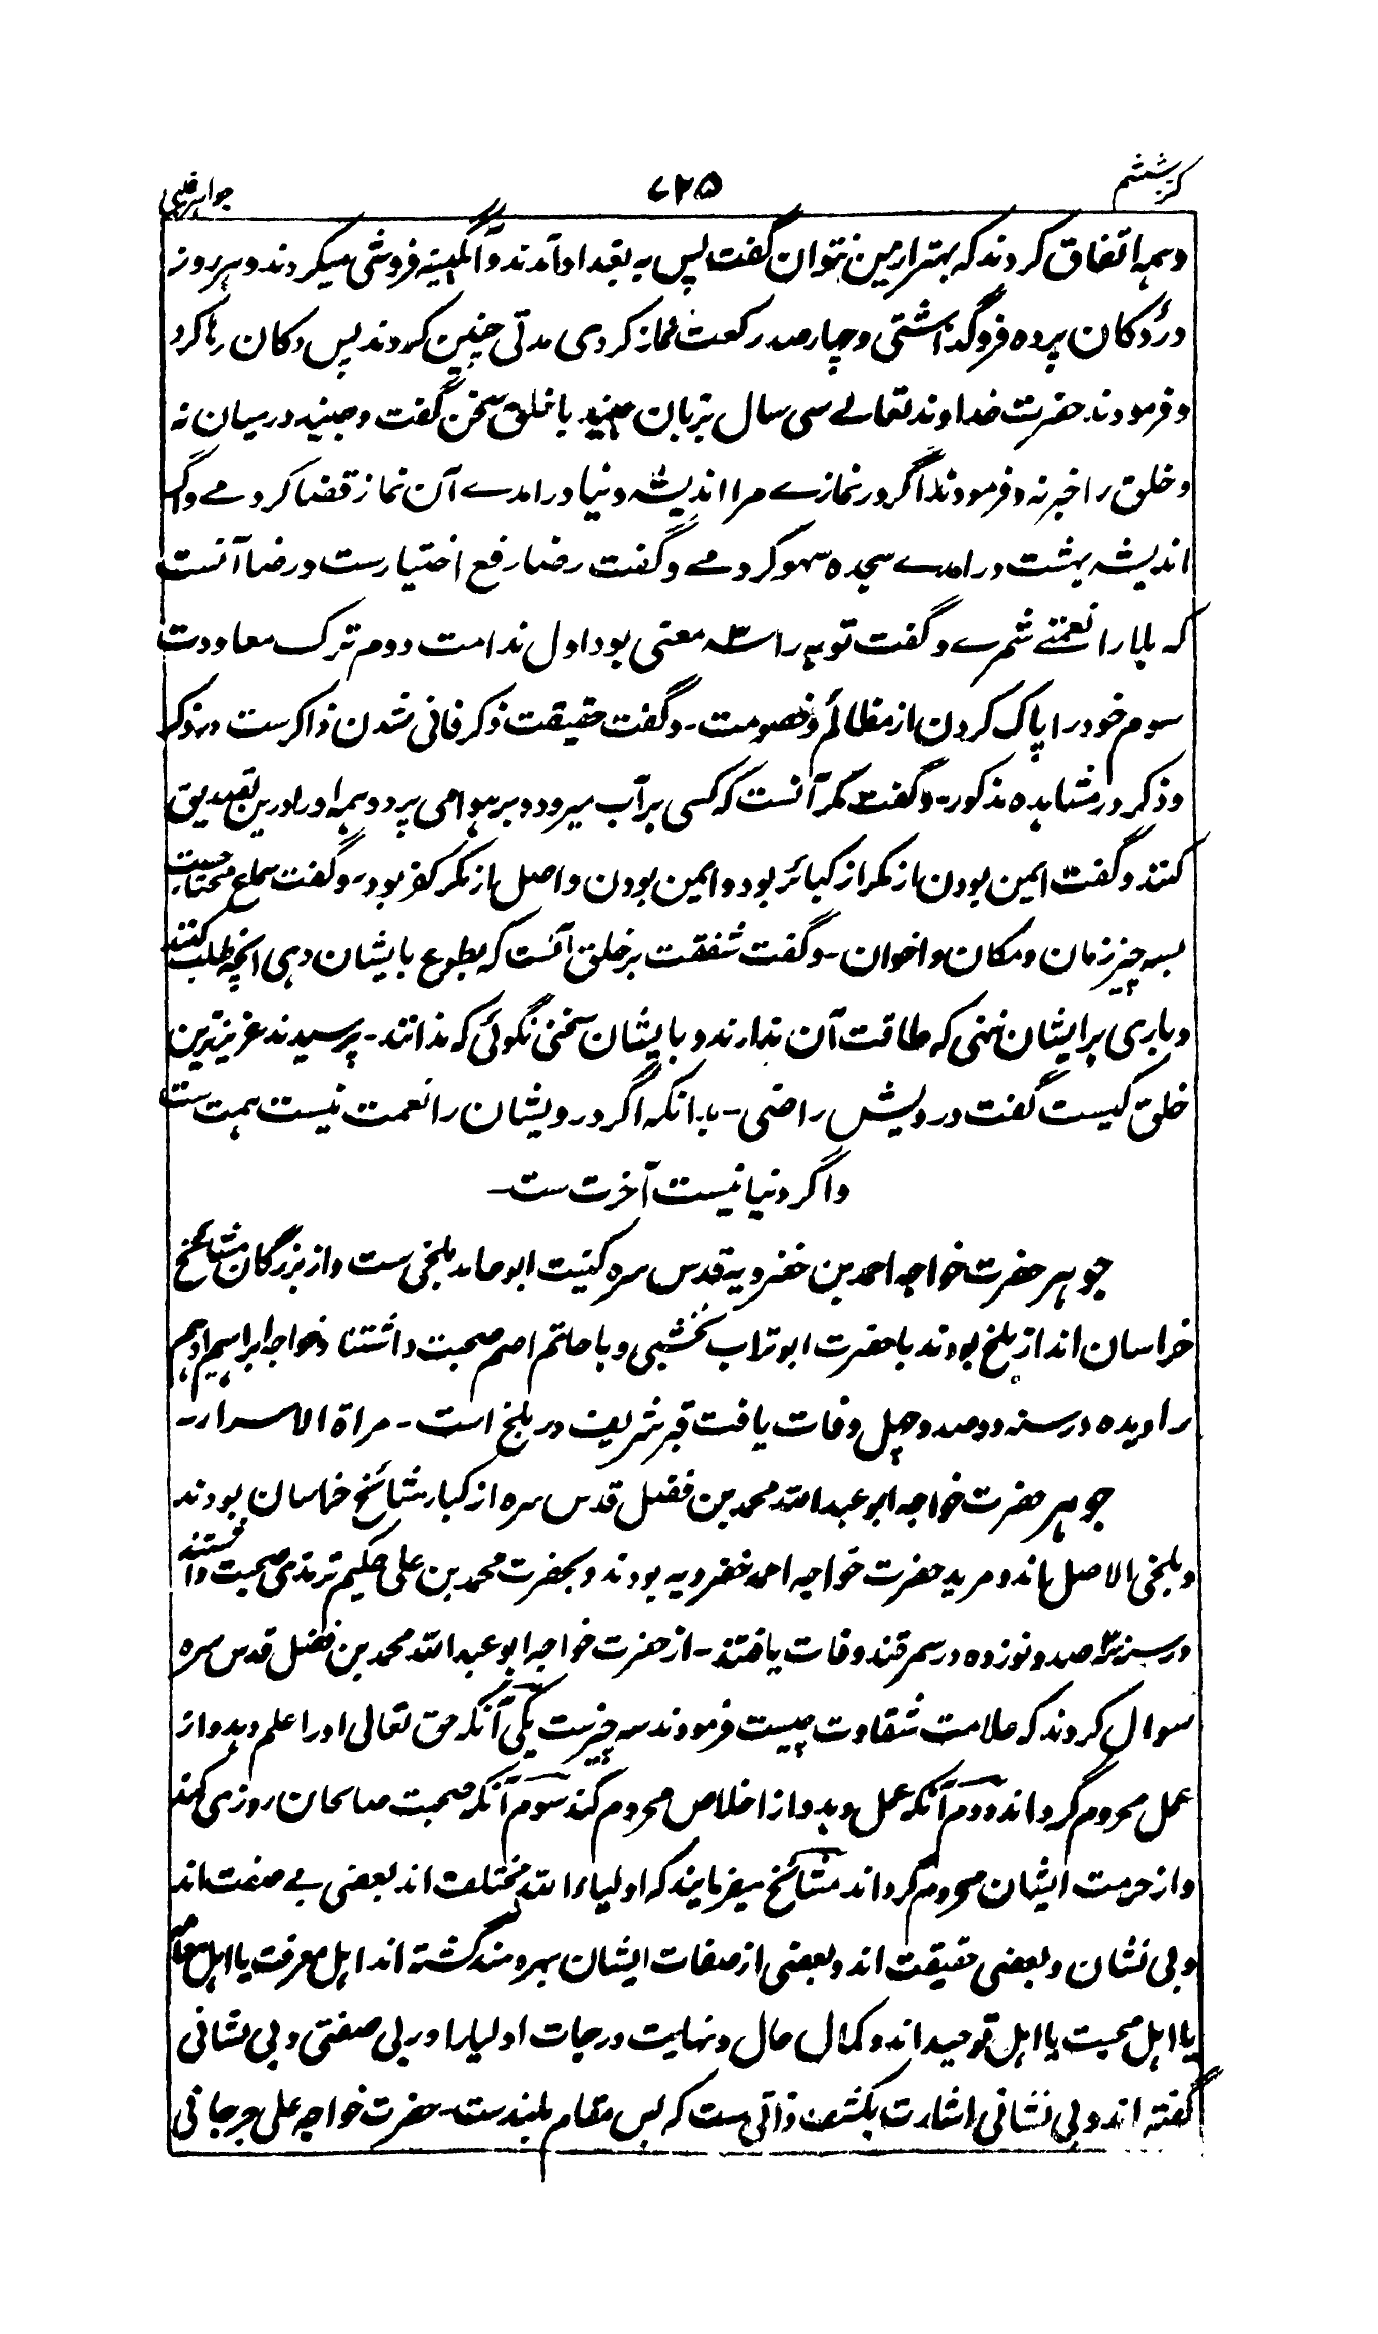 کنز ششم ۷۲۵ جواهر غیبی
و همه اتفاق کردند که بهتر ازین نتوان گفت پس به بغداد آمدند و آبگینه فروشی میکردند و هر روز
در دکان پرده فروگذاشتی و چهار صد رکعت نماز کردی مدتی چنین کردند پس دکان رها کرد
و فرمودند حضرت خداوند تعالے سی سال بزبان جنید با خلق سخن گفت و جنید در میان نه
و خلق را خبر نه و فرمودند اگر در نمازے مرا اندیشه دنیا درامدے آن نماز قضا کردمے و اگر
اندیشه بهشت درامدے سجده سهو کردمے و گفت رضا رفع اختیارست و رضا آنست
که بلا را نعمتے شمرے و گفت توبه را سه معنی بود اول ندامت دوم ترک معاودت
سوم خود را پاک کردن از مظالم و خصومت - و گفت حقیقت ذکر فانی شدن ذاکرست در ذکر
و ذکر در مشاهده مذکور - و گفت مکر آنست که کسی بر آب میرود و بر هوا می پرد و همه او را درین تصدیق
کنند و گفت ایمن بودن از مکر از کبائر بود و ایمن بودن واصل از مکر کفر بود - و گفت سماع محتاجست
بسه چیز زمان و مکان و اخوان - و گفت شفقت بر خلق آنست که بطوع بایشان دهی انچه طلب کنند
و باری بر ایشان ننهی که طاقت آن ندارند و بایشان سخنی نگوئی که ندانند - پرسیدند عزیزترین
خلق کیست گفت درویش راضی - بدانکه اگر درویشان را نعمت نیست همت ست
و اگر دنیا نیست آخرت ست -
جوهر حضرت خواجه احمد بن خضرویه قدس سره کنیت ابو حامد بلخی ست و از بزرگان مشائخ
خراسان اند از بلخ بودند با حضرت ابو تراب نخشبی و با حاتم اصم صحبت داشتند و خواجه ابراهیم ادهم
را دیده در سنه دو صد و چهل وفات یافت قبر شریف در بلخ است - مراة الاسرار -
جوهر حضرت خواجه ابو عبدالله محمد بن فضل قدس سره از کبار مشائخ خراسان بودند
و بلخی الاصل اند و مرید حضرت خواجه احمد خضرویه بودند و بحضرت محمد بن علی حکیم ترمذی صحبت داشتند
در سنه سه صد و نوزده در سمرقند وفات یافتند - از حضرت خواجه ابو عبدالله محمد بن فضل قدس سره
سوال کردند که علامت شقاوت چیست فرمودند سه چیزست یکی آنکه حق تعالی او را علم دهد و از
عمل محروم گرداند دوم آنکه عمل دهد و از اخلاص محروم کند سوم آنکه صحبت صالحان روزی کند
و از حرمت ایشان محروم گرداند مشائخ میفرمایند که اولیاء الله مختلف اند بعضی بے صفت اند
و بی نشان و بعضی حقیقت اند و بعضی از صفات ایشان بهره مند گشته اند اهل معرفت یا اهل معامله
یا اهل محبت یا اهل توحید اند و کمال حال و نهایت درجات اولیا را در بی صفتی و بی نشانی
گفته اند و بی نشانی اشارت بکشف ذاتی ست که بس مقام بلند ست - حضرت خواجه علی جرجانی